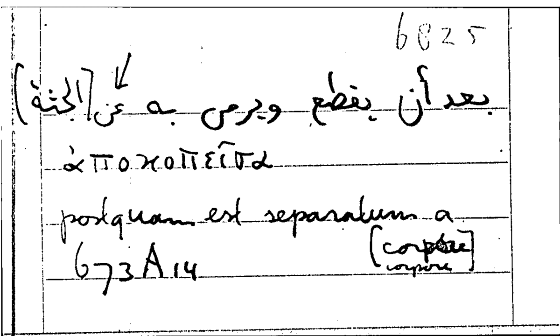 6825
بعد أن يقطع ويرمى به عن [الجثة]
ἀποκοπεῖσα
postquam est separatum a
[corpore]
corpore
673A14